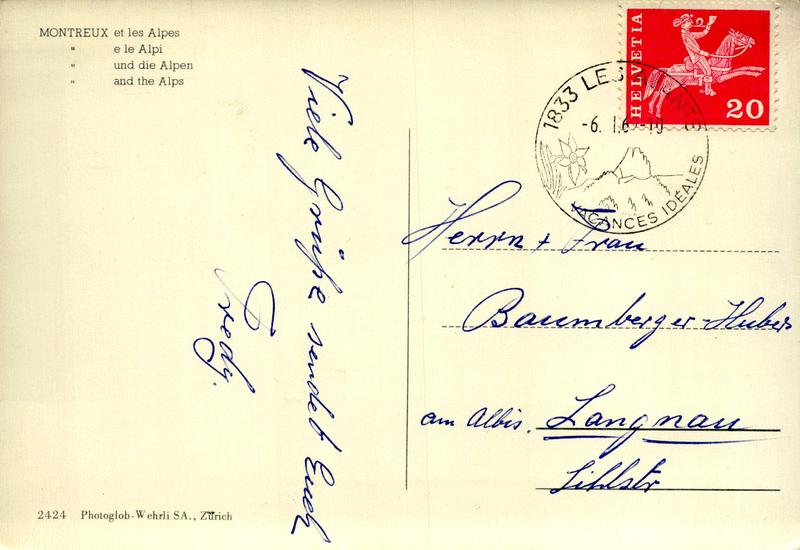 MONTREUX et les Alpes
" e le Alpi
" und die Alpen
" and the Alps
Viele Grüße sendet Euch
Fredy.
HELVETIA
20
1833 LES
-6. 1.6 -10
VACANCES IDÉALES
Herrn + Frau
Baumberger-Huber
am Albis. Langnau
Sihlstr
2424 Photoglob-Wehrli SA., Zürich